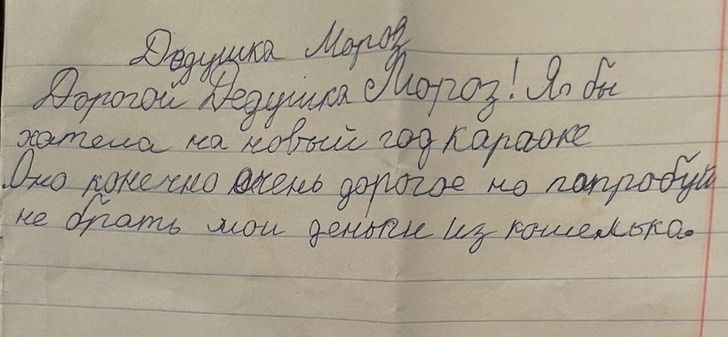 Дедушка Мороз
Дорогой Дедушка Мороз! Я бы
хатела на новый год караоке
Оно конечно очень дорогое но папробуй
не брать мои деньги из кошелька.